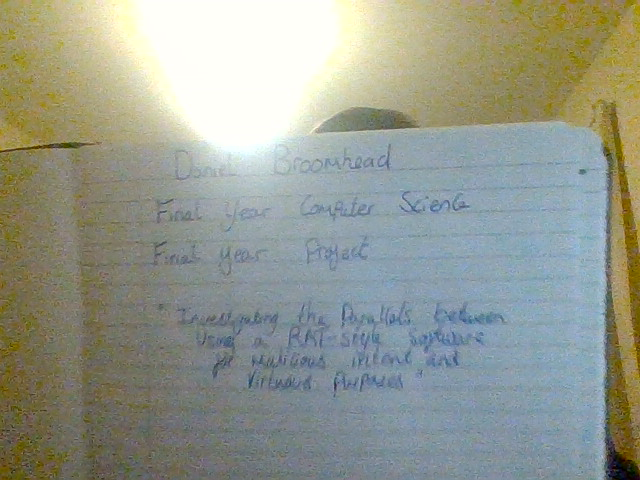 Daniel Broomhead
Final Year Computer Science
Final Year Project
"Investigating the Parallels between
Using a RAT-style Software
for Malicious intent and
Virtuous Purposes"